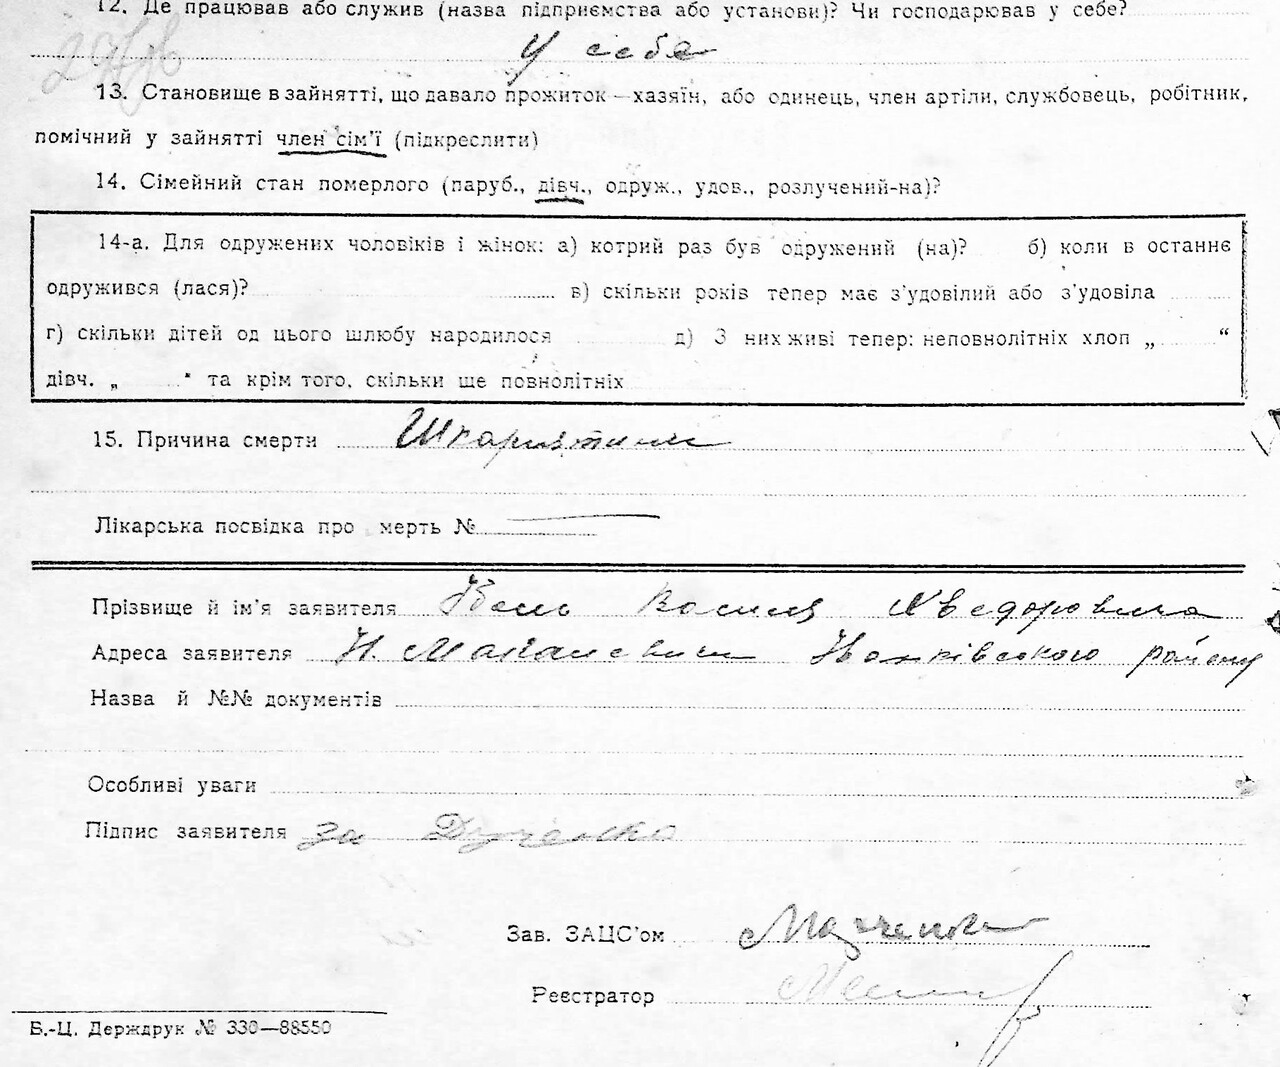 12. Де працював або служив (назва підприємства або установи)? Чи господарював у себе?
У себе
13. Становище в зайнятті, що давало прожиток — хазяїн, або одинець, член артіли, службовець, робітник,
помічний у зайнятті член сім'ї (підкреслити)
14. Сімейний стан померлого (паруб., дівч., одруж., удов., розлучений-на)?
14-а. Для одружених чоловіків і жінок: а) котрий раз був одружений (на)? б) коли в останнє
одружився (лася)? в) скільки років тепер має з'удовілий або з'удовіла
г) скільки дітей од цього шлюбу народилося д) З них живі тепер: неповнолітніх хлоп „ “
дівч. „ “ та крім того, скільки ще повнолітніх
15. Причина смерти Шкарлятина
Лікарська посвідка про мерть №
Прізвище й ім'я заявителя Василя Хведоровича
Адреса заявителя Н. Макалевичи Іванківського району
Назва й №№ документів
Особливі уваги
Підпис заявителя за
Зав. ЗАЦС'ом
Реєстратор
Б.-Ц. Держдрук № 330—88550